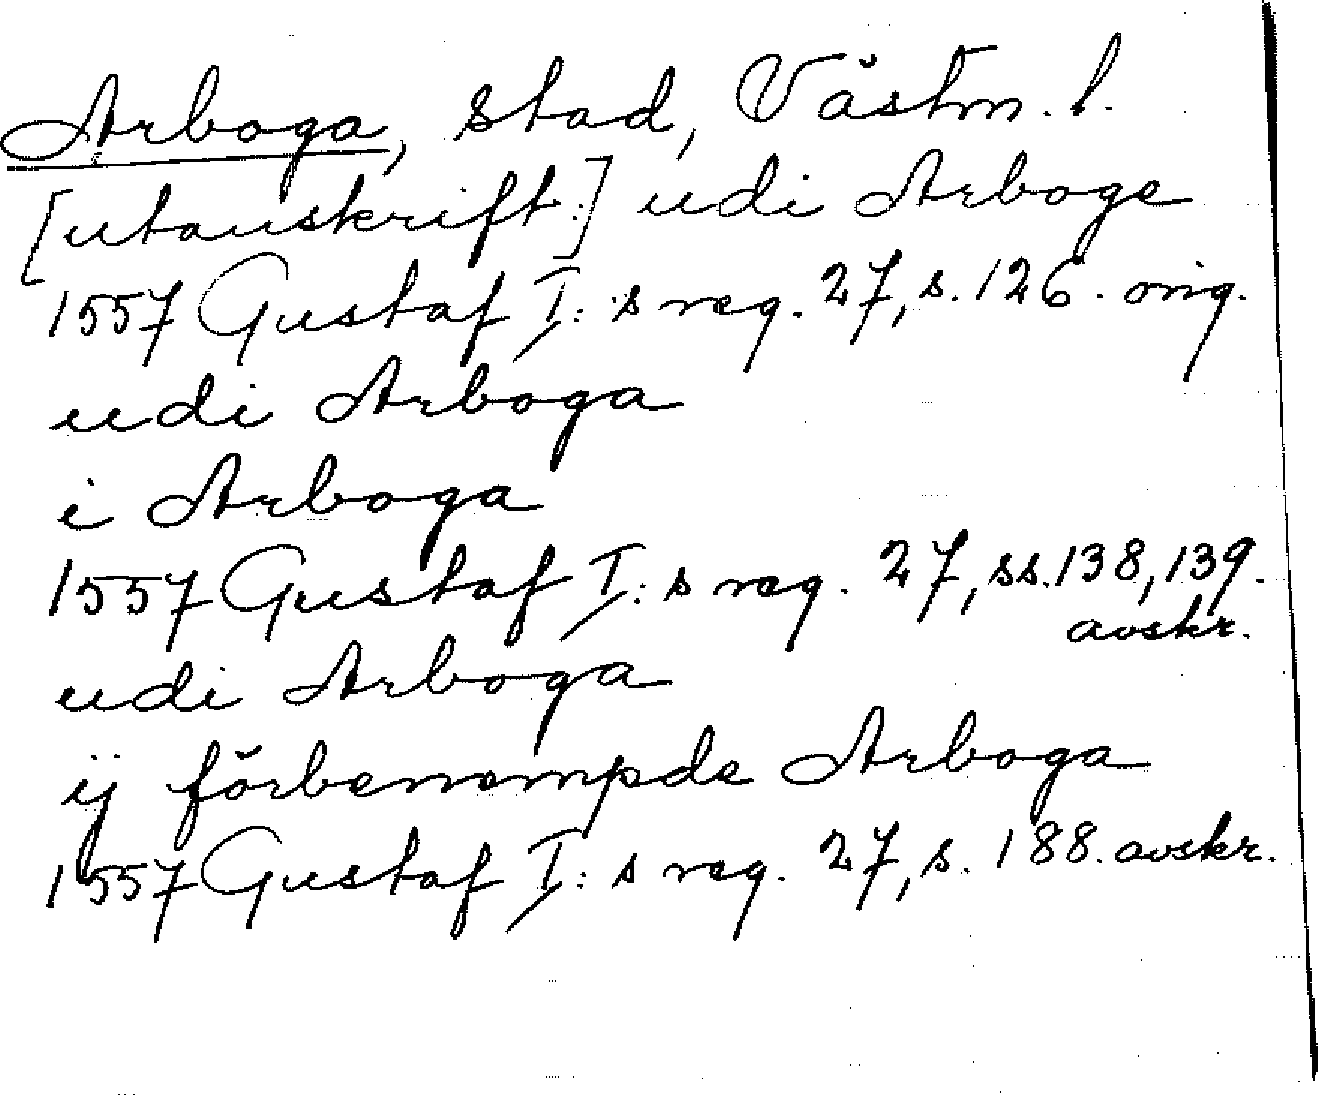 Arboga, stad, Västm. l.
[utanskrift:] udi Arboge
1557 Gustaf I: s reg. 27, s. 126. orig.
udi Arboga
i Arboga
1557 Gustaf I: s reg. 27, ss. 138, 139.
avskr.
udi Arboga
ij förbenempde Arboga
1557 Gustaf I: s reg. 27, s. 188. avskr.